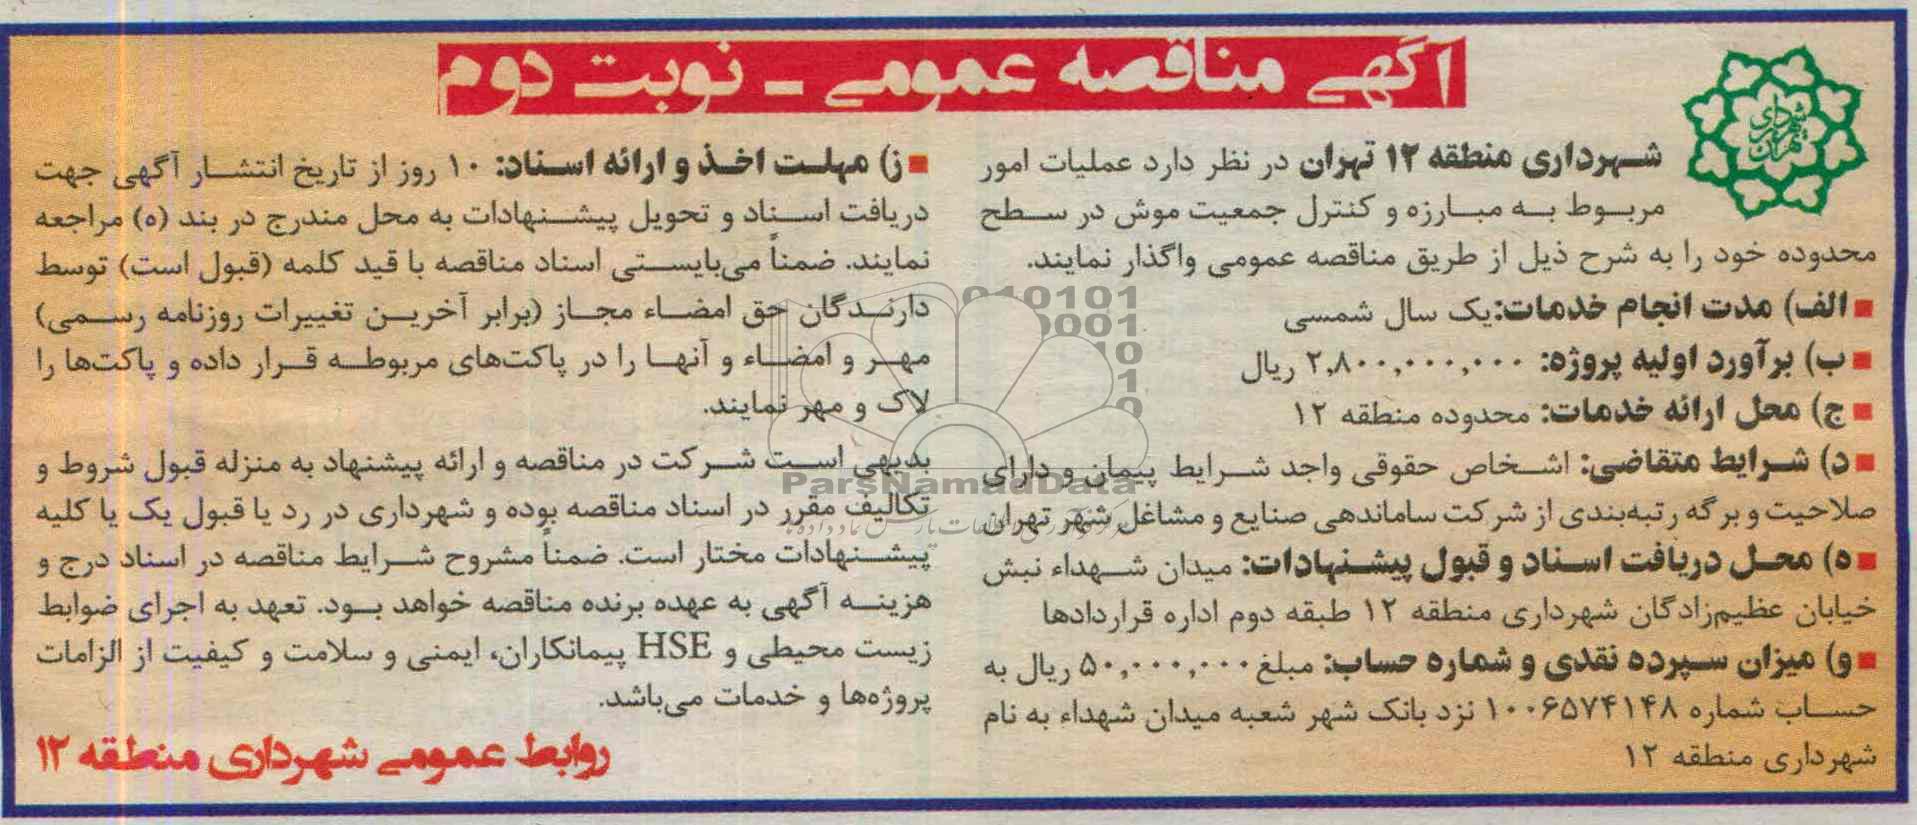 آگهی مناقصه عمومی - نوبت دوم
شهرداری تهران
شهرداری منطقه ۱۲ تهران در نظر دارد عملیات امور
مربوط به مبارزه و کنترل جمعیت موش در سطح
محدوده خود را به شرح ذیل از طریق مناقصه عمومی واگذار نمایند.
■ الف) مدت انجام خدمات: یک سال شمسی
■ ب) برآورد اولیه پروژه: ۲,۸۰۰,۰۰۰,۰۰۰ ریال
■ ج) محل ارائه خدمات: محدوده منطقه ۱۲
■ د) شرایط متقاضی: اشخاص حقوقی واجد شرایط پیمان و دارای
صلاحیت و برگه رتبه‌بندی از شرکت ساماندهی صنایع و مشاغل شهر تهران
■ ه) محل دریافت اسناد و قبول پیشنهادات: میدان شهداء نبش
خیابان عظیم‌زادگان شهرداری منطقه ۱۲ طبقه دوم اداره قراردادها
■ و) میزان سپرده نقدی و شماره حساب: مبلغ ۵۰,۰۰۰,۰۰۰ ریال به
حساب شماره ۱۰۰۶۵۷۴۱۴۸ نزد بانک شهر شعبه میدان شهداء به نام
شهرداری منطقه ۱۲
■ ز) مهلت اخذ و ارائه اسناد: ۱۰ روز از تاریخ انتشار آگهی جهت
دریافت اسناد و تحویل پیشنهادات به محل مندرج در بند (ه) مراجعه
نمایند. ضمناً می‌بایستی اسناد مناقصه با قید کلمه (قبول است) توسط
دارندگان حق امضاء مجاز (برابر آخرین تغییرات روزنامه رسمی)
مهر و امضاء و آنها را در پاکت‌های مربوطه قرار داده و پاکت‌ها را
لاک و مهر نمایند.
بدیهی است شرکت در مناقصه و ارائه پیشنهاد به منزله قبول شروط و
تکالیف مقرر در اسناد مناقصه بوده و شهرداری در رد یا قبول یک یا کلیه
پیشنهادات مختار است. ضمناً مشروح شرایط مناقصه در اسناد درج و
هزینه آگهی به عهده برنده مناقصه خواهد بود. تعهد به اجرای ضوابط
زیست محیطی و HSE پیمانکاران، ایمنی و سلامت و کیفیت از الزامات
پروژه‌ها و خدمات می‌باشد.
روابط عمومی شهرداری منطقه ۱۲
ParsNamadData